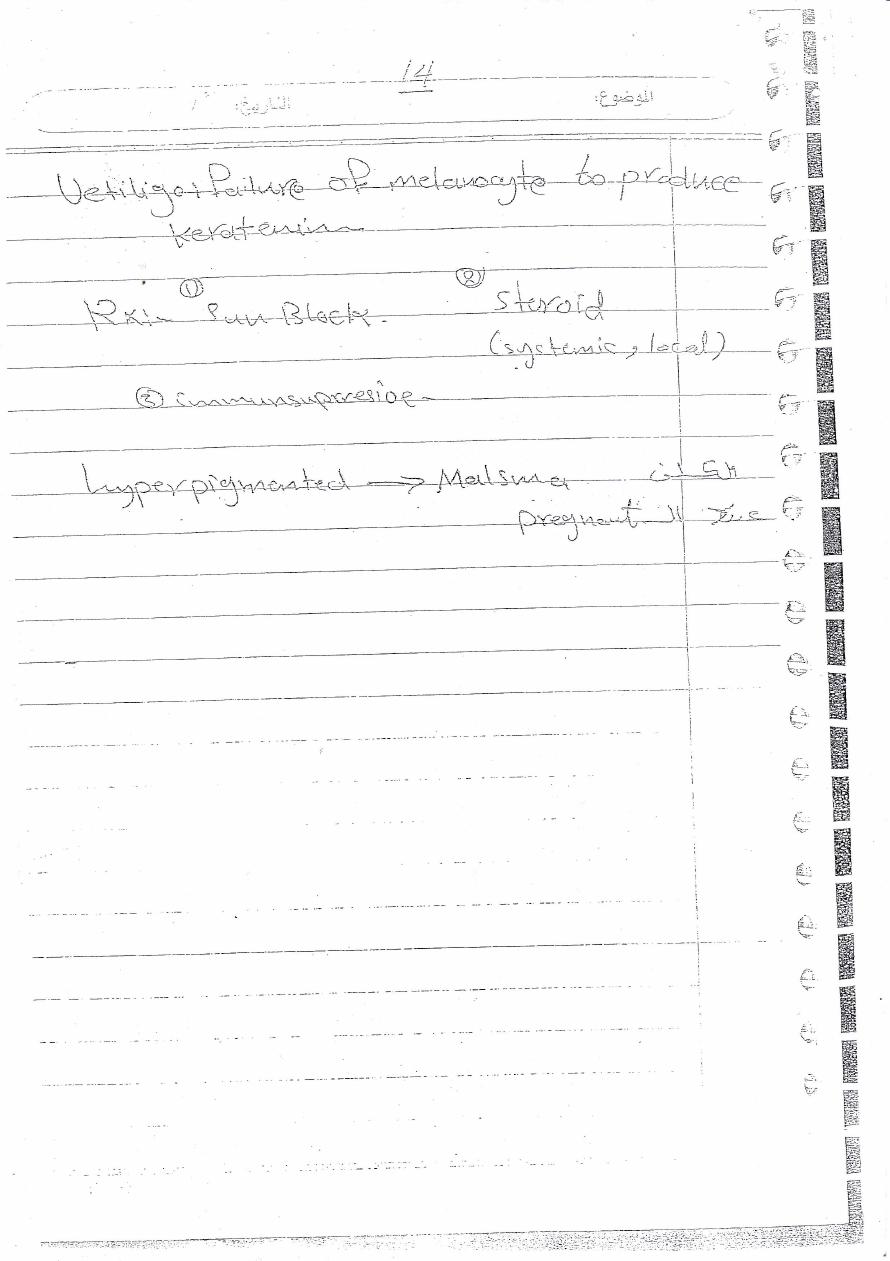 14
الموضوع: التاريخ: /
Vetiligo: Failure of melanocyte to produce
keratenin
① ②
Rx:- Sun Block. Steroid
(systemic, local)
③ immunsupresioe
hyperpigmanted → Malsma
pregnant ال عند